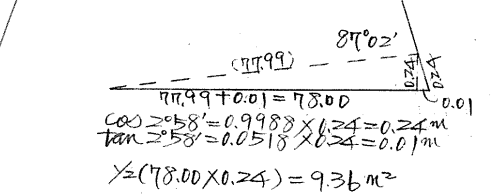 87°02'
(77.99)
0.24
0.24
77.99+0.01=78.00
0.01
cos 2°58'=0.9988×0.24=0.24m
tan 2°58'=0.0518×0.24=0.01m
1/2(78.00×0.24)=9.36m²